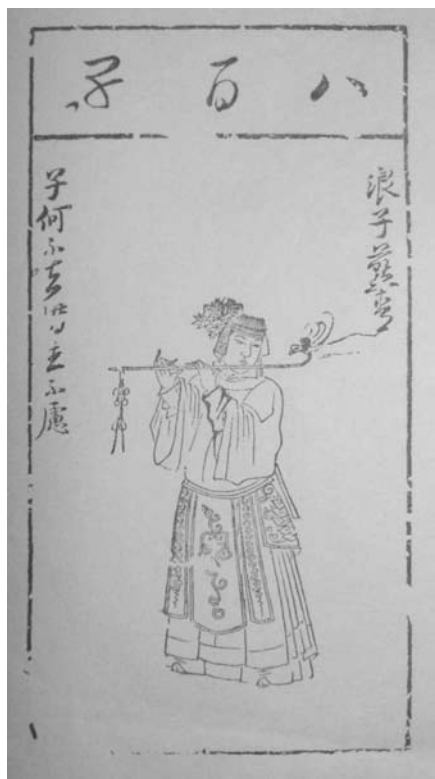 八百子
浪子燕青
子何不去惜主不慮